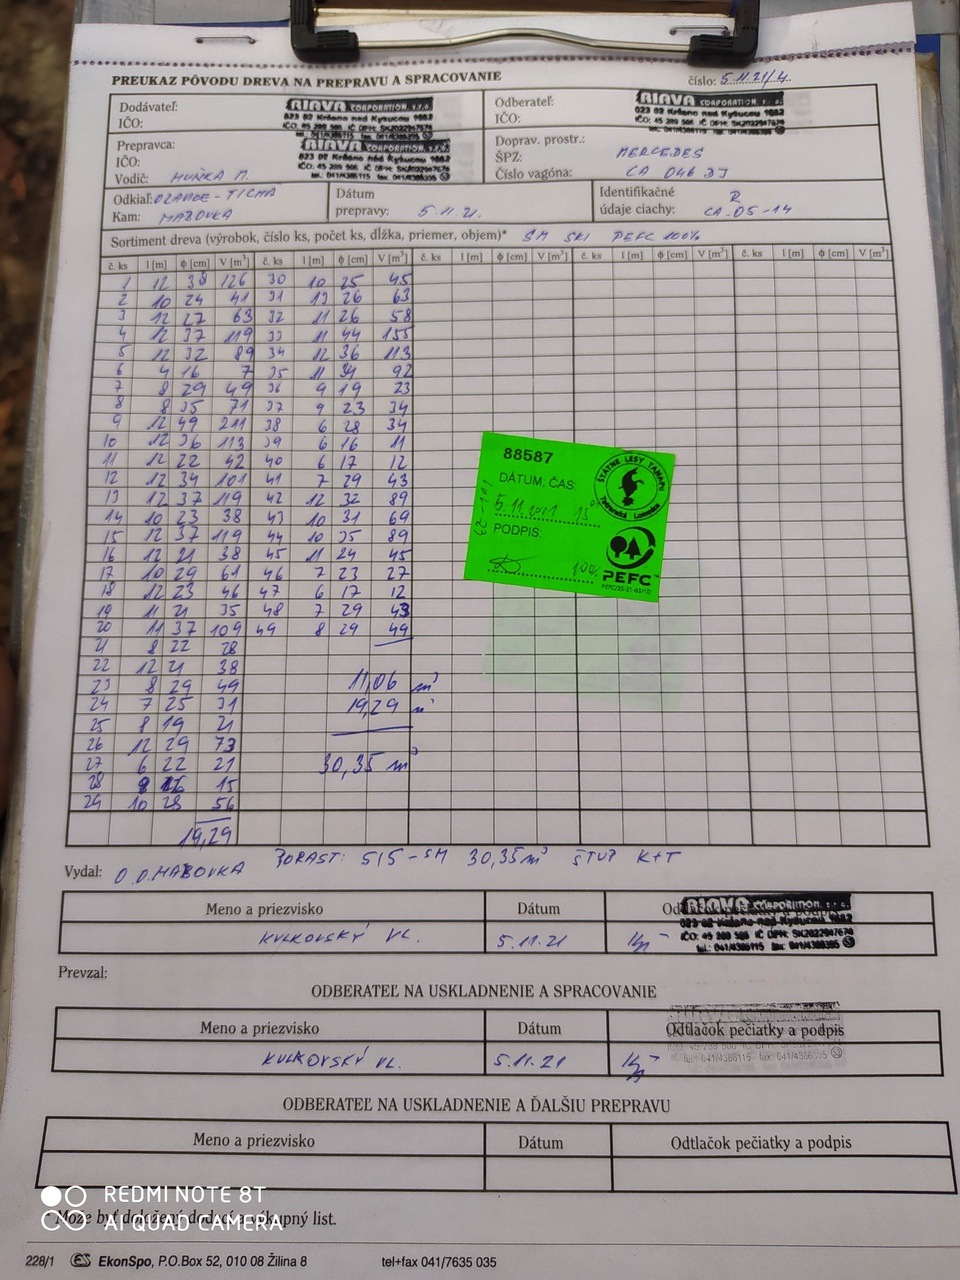 PREUKAZ PÔVODU DREVA NA PREPRAVU A SPRACOVANIE
číslo: 5.11.21/4.
Dodávateľ:
IČO:
RIAVA CORPORATION, s.r.o.
023 02 Krásno nad Kysucou 1882
IČO: 45 289 506 IČ DPH: SK2022947676
Odberateľ:
IČO:
RIAVA CORPORATION, s.r.o.
023 02 Krásno nad Kysucou 1882
IČO: 45 289 506 IČ DPH: SK2022947676
Prepravca:
IČO:
Vodič: HUŇKA M.
RIAVA CORPORATION, s.r.o.
023 02 Krásno nad Kysucou 1882
IČO: 45 289 506 IČ DPH: SK2022947676
tel.: 041/4386115 fax: 041/4386395
Doprav. prostr.:
ŠPZ: MERCEDES
Číslo vagóna: CA 046 DJ
Odkiaľ: - TICHÁ
Kam: MAZOVKA
Dátum
prepravy: 5.11.21.
Identifikačné R
údaje ciachy: CA-05-14
Sortiment dreva (výrobok, číslo ks, počet ks, dĺžka, priemer, objem)* SM SKI PEFC 100%
č. ks l [m] ϕ [cm] V [m³] č. ks l [m] ϕ [cm] V [m³] č. ks l [m] ϕ [cm] V [m³] č. ks l [m] ϕ [cm] V [m³] č. ks l [m] ϕ [cm] V [m³]
1 12 38 126 30 10 25 45
2 10 24 41 31 13 26 63
3 12 27 63 32 11 26 58
4 12 37 119 33 11 44 155
5 12 32 89 34 12 36 113
6 4 16 7 35 11 34 92
7 8 29 49 36 9 19 23
8 8 35 71 37 9 23 34
9 12 49 211 38 6 28 34
10 12 36 113 39 6 16 11
11 12 22 42 40 6 17 12
12 12 34 101 41 7 29 43
13 12 37 119 42 12 32 89
14 10 23 38 43 10 31 69
15 12 37 119 44 10 35 89
16 12 21 38 45 11 24 45
17 10 29 61 46 7 23 27
18 12 23 46 47 6 17 12
19 11 21 35 48 7 29 43
20 11 37 109 49 8 29 49
21 8 22 28
22 12 21 38
23 8 29 49 11,06 m³
24 7 25 31 19,29 m³
25 8 19 21
26 12 29 73
27 6 22 21 30,35 m³
28 8 16 15
29 10 28 56
19,29
88587
DÁTUM, ČAS:
5.11.2021 15
PODPIS:
100%
ŠTÁTNE LESY TANAPU
Tatranská Lomnica
PEFC™
PEFC/35-21-03/10
Vydal: O.O.MAZOVKA PORAST: 515-SM 30,35m³ ŠTUP K+T
Meno a priezvisko Dátum
KULKOVSKÝ VL. 5.11.21
RIAVA CORPORATION, s.r.o.
023 02 Krásno nad Kysucou 1882
IČO: 45 289 506 IČ DPH: SK2022947676
tel.: 041/4386115 fax: 041/4386395
Prevzal:
ODBERATEĽ NA USKLADNENIE A SPRACOVANIE
Meno a priezvisko Dátum Odtlačok pečiatky a podpis
KULKOVSKÝ VL. 5.11.21
tel.: 041/4386115 fax: 041/4386395
ODBERATEĽ NA USKLADNENIE A ĎALŠIU PREPRAVU
Meno a priezvisko Dátum Odtlačok pečiatky a podpis
REDMI NOTE 8T
AI QUAD CAMERA
* Môže byť doložený dodací a výkupný list.
228/1 ES EkonSpo, P.O.Box 52, 010 08 Žilina 8 tel+fax 041/7635 035